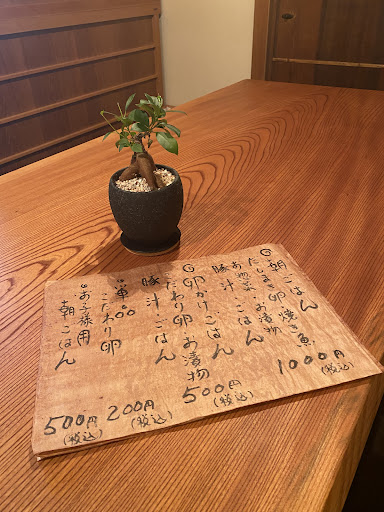 ◎朝ごはん
だしまき卵 焼き魚
お惣菜 お漬物
豚汁 ごはん
1000円
(税込)
◎卵かけごはん
こだわり卵 お漬物
豚汁 ごはん
500円
(税込)
◎単品
こだわり卵
200円
(税込)
◎お子様用
朝ごはん
500円
(税込)